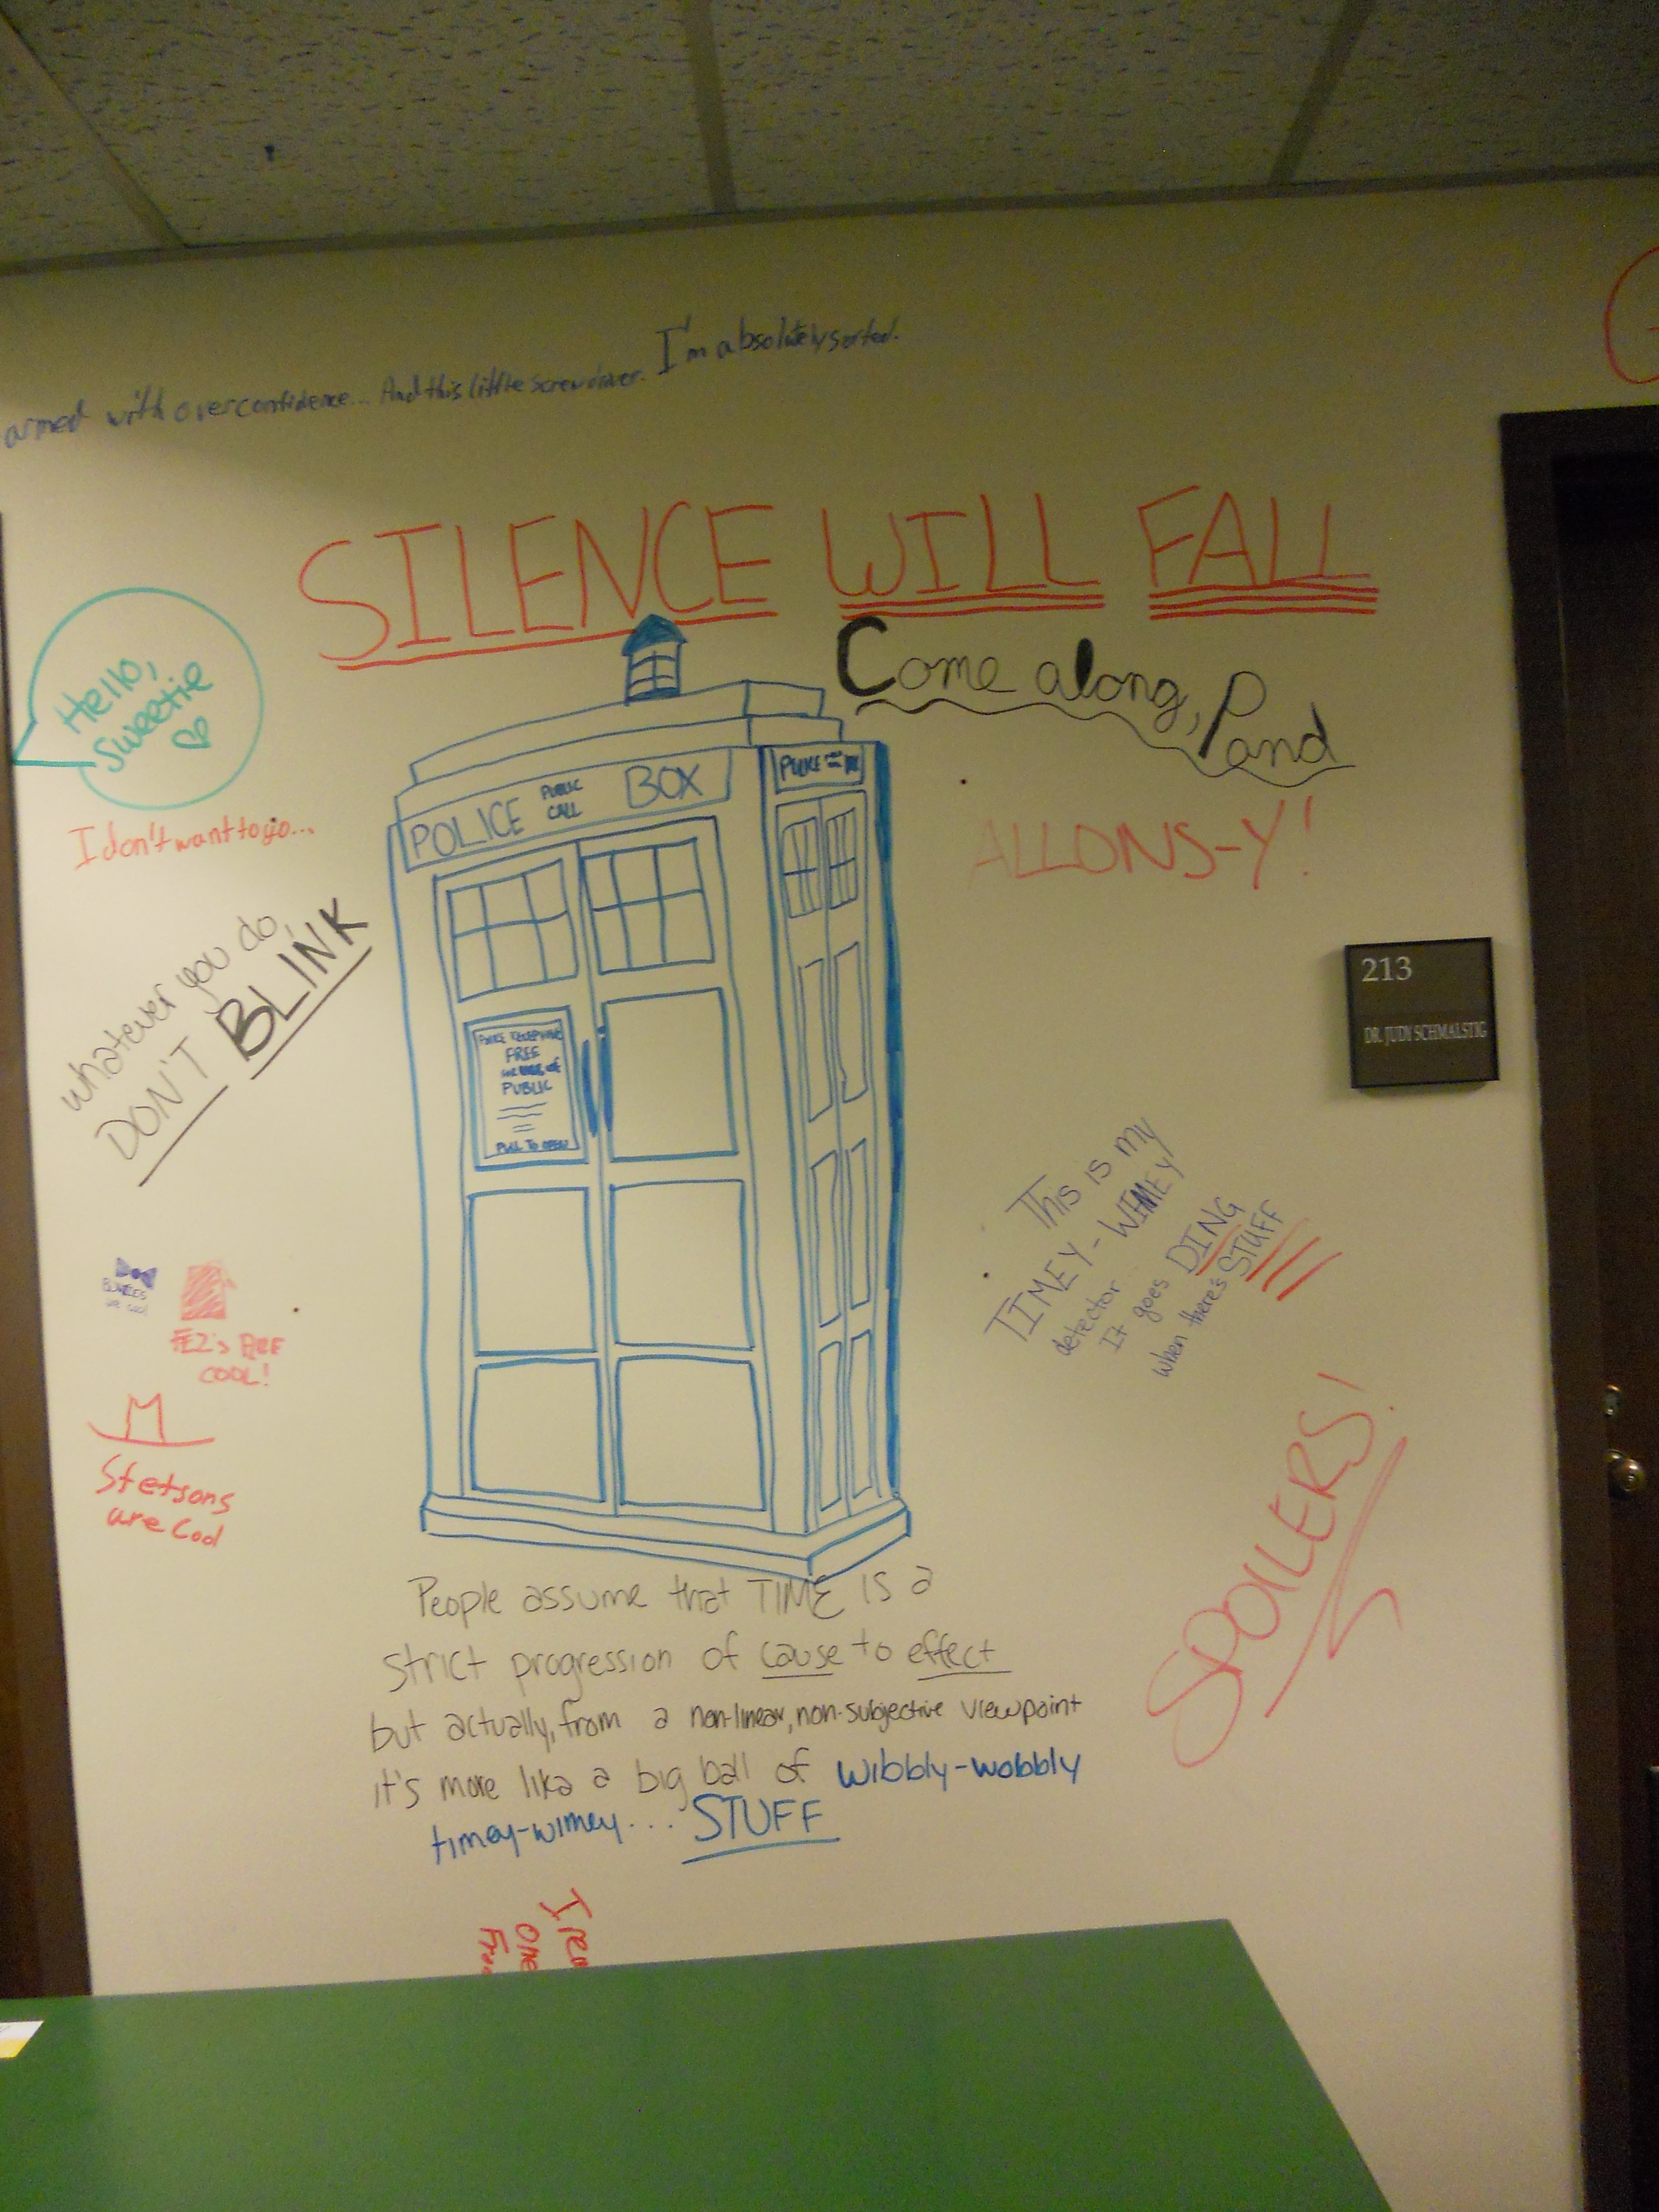 armed with overconfidence... And this little screwdriver. I'm absolutely sorted.
SILENCE WILL FALL
Hello,
Sweetie
Come along, Pond
I don't want to go...
POLICE PUBLIC CALL BOX
POLICE
ALLONS-Y!
whatever you do,
DON'T BLINK
213
DR. JUDY SCHMALSTIG
POLICE TELEPHONE
FREE
FOR USE of
PUBLIC
PULL TO OPEN
This is my
TIMEY-WIMEY
detector
It goes DING
when there's STUFF
BOWTIES
are cool
FEZ's ARE
COOL!
Stetsons
are Cool
SPOILERS!
People assume that TIME IS a
strict progression of cause to effect
but actually, from a non-linear, non-subjective viewpoint
it's more like a big ball of wibbly-wobbly
timey-wimey... STUFF